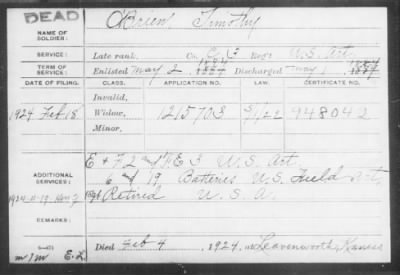 DEAD
NAME OF SOLDIER: O'Brien Timothy
SERVICE: Late rank, Co. C, 3 Reg't U.S. Art.
TERM OF SERVICE: Enlisted May 2, 1884 Discharged May 1, 1887
DATE OF FILING. CLASS. APPLICATION NO. CERTIFICATE NO.
Invalid,
1924 Feb 18 Widow, 1215703 948042
Minor,
ADDITIONAL SERVICES: E & F 2 and E 3 U.S. Art.
6 and 19 Batteries U.S. Field Art.
Retired U.S.A.
REMARKS:
Died Feb 4, 1924, at Leavenworth Kansas